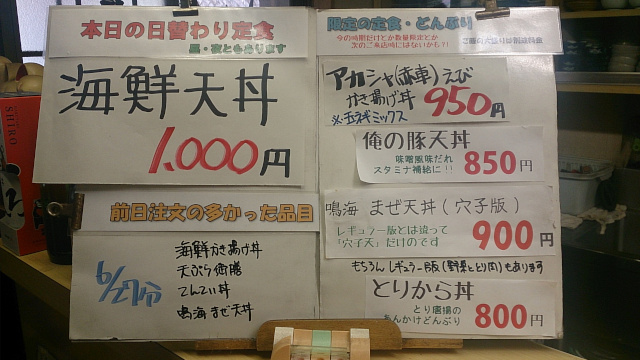 本日の日替わり定食
昼・夜ともあります
海鮮天丼
1,000円
前日注文の多かった品目
6/27分
海鮮かき揚げ丼
天ぷら御膳
てんてい丼
鳴海まぜ天丼
限定の定食・どんぶり
今の時期だけとか数量限定とか
次のご来店時にはないかも?!
ご飯の大盛りは別途料金
アカシャ(赤車)えび
かき揚げ丼 950円
※玉ネギミックス
俺の豚天丼
味噌風味だれ
スタミナ補給に!! 850円
鳴海 まぜ天丼(穴子版)
レギュラー版とは違って
「穴子天」だけのです 900円
もちろん レギュラー版(野菜ととり肉)もあります
とりから丼
とり唐揚の
あんかけどんぶり 800円
SHIRO